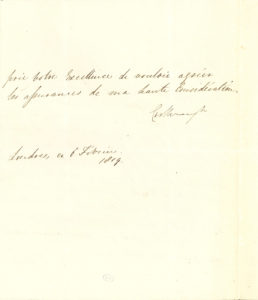 prie Votre Excellence de vouloir agréer
les assurances de ma haute Considération.
Londres, ce 6 Février
1819.